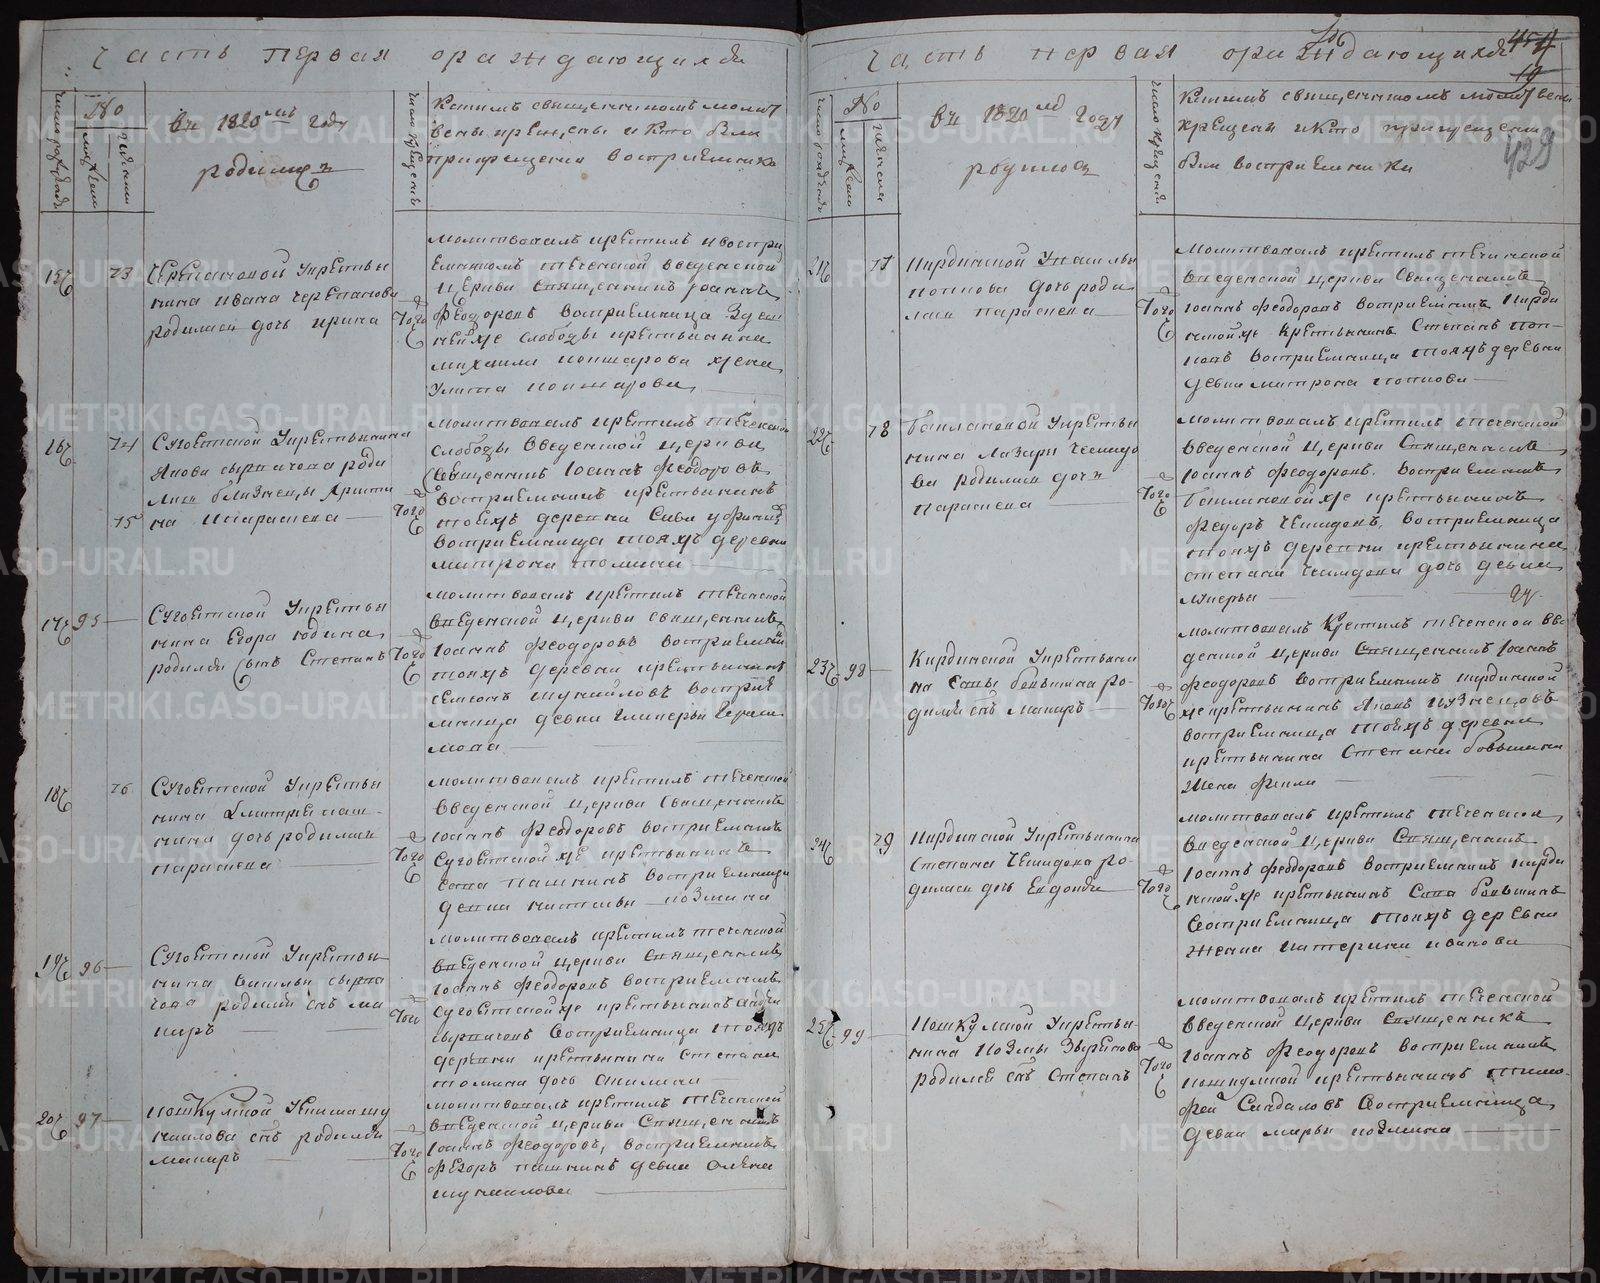 часть первая о раждающихся
число рождения
№
мужеска
женска
въ 1820мъ году
родились
число крещения
Которымъ священникомъ молит
вены крещены и кто были
при крещении восприемники
15
73
Черепановой Укрестья
нина Ивана черепанова
родилась дочь ирина
того
молитвовалъ крестилъ и воспри
емникомъ теченской введенской
церкви священникъ иоаннъ
феодоровъ восприемница Здеш
нейже слободы крестьянина
михаила кокшарова жена
Улита кокшарова
16
74
75
Сугоятской Укрестьянина
Якова сырпачева роди
лись близнецы Христи
на ипараскева
того
молитвовалъ крестилъ теченской
слободы введенской церкви
священникъ Иоаннъ феодоровъ
восприемникъ крестьянинъ
тояжъ деревни
восприемница тояжъ деревни
матрона томина
17
95
Сугоятской Укрестья
нина Егора юдина
родился сынъ Степанъ
того
молитвовалъ крестилъ теченской
введенской церкви священникъ
иоаннъ феодоровъ восприемникъ
тояжъ деревни крестьянинъ
семенъ шукайловъ восприе
мница девка гликерья Гераси
мова
18
76
Сугоятской Укрестья
нина Дмитрия паш
кина дочь родилась
параскева
того
молитвовалъ крестилъ теченской
введенской церкви священникъ
иоаннъ феодоровъ восприемникъ
Сугоятской же крестьянинъ
сава пашкинъ восприемница
девка наталья козмина
19
96
Сугоятской Укрестья
нина василья сырпа
чева родился сынъ ма
каръ
того
молитвовалъ крестилъ теченской
введенской церкви священникъ
иоаннъ феодоровъ восприемникъ
сугоятской же крестьянинъ
сырпачевъ восприемница тояжъ
деревни крестьянина степана
томина дочь акилина
20
97
кошкулской
сынъ родился
макаръ
того
молитвовалъ крестилъ теченской
введенской церкви священникъ
иоаннъ феодоровъ, восприемникъ
федоръ пашкинъ девка олена
шукайлова
часть первая о раждающихся
429
число рождения
№
мужеска
женска
въ 1820мъ году
родились
число крещения
Которымъ священникомъ молитвены
крещены и кто при крещении
были восприемники
21
77
Кирдинской Укасьяна
попкова дочь роди
лась параскева
того
молитвовалъ крестилъ теченской
введенской церкви священникъ
иоаннъ феодоровъ восприемникъ кирди
нскойже крестьянинъ Степанъ поп
ковъ восприемница тояжъ деревни
девка матрона попкова
22
78
Баклановой Укрестья
нина лазаря Чемидо
ва родилась дочь
параскева
того
молитвовалъ крестилъ теченской
введенской церкви священникъ
иоаннъ феодоровъ. восприемникъ
Баклановойже крестьянинъ
федоръ Чемидовъ. восприемница
тояжъ деревни крестьянина
степана Чемидова дочь девка
лукерья
23
98
Кирдинской Укрестьяни
на Савы бовыкина ро
дился сынъ макаръ
того
молитвовалъ Крестилъ теченской вве
денской церкви священникъ иоаннъ
феодоровъ восприемникъ кирдинской
же крестьянинъ Яковъ кузнецовъ
восприемница тояжъ деревни
крестьянина степана бовыкина
жена фекла
24
79
Кирдинской Укрестьянина
Степана Чемидова ро
дилась дочь Евдокия
того
молитвовалъ крестилъ теченской
введенской церкви священникъ
иоаннъ феодоровъ восприемникъ кирди
нской же крестьянинъ Сава бовыкинъ
восприемница тояжъ деревни
жена катерина иванова
25
99
кошкулской Укрестья
нина козмы Зырянова
родился сынъ Степанъ
того
молитвовалъ крестилъ теченской
введенской церкви священникъ
иоаннъ феодоровъ восприемникъ
кошкулской крестьянинъ тимо
фей Сандаловъ восприемница
девка марья козмина
METRIKI.GASO-URAL.RU